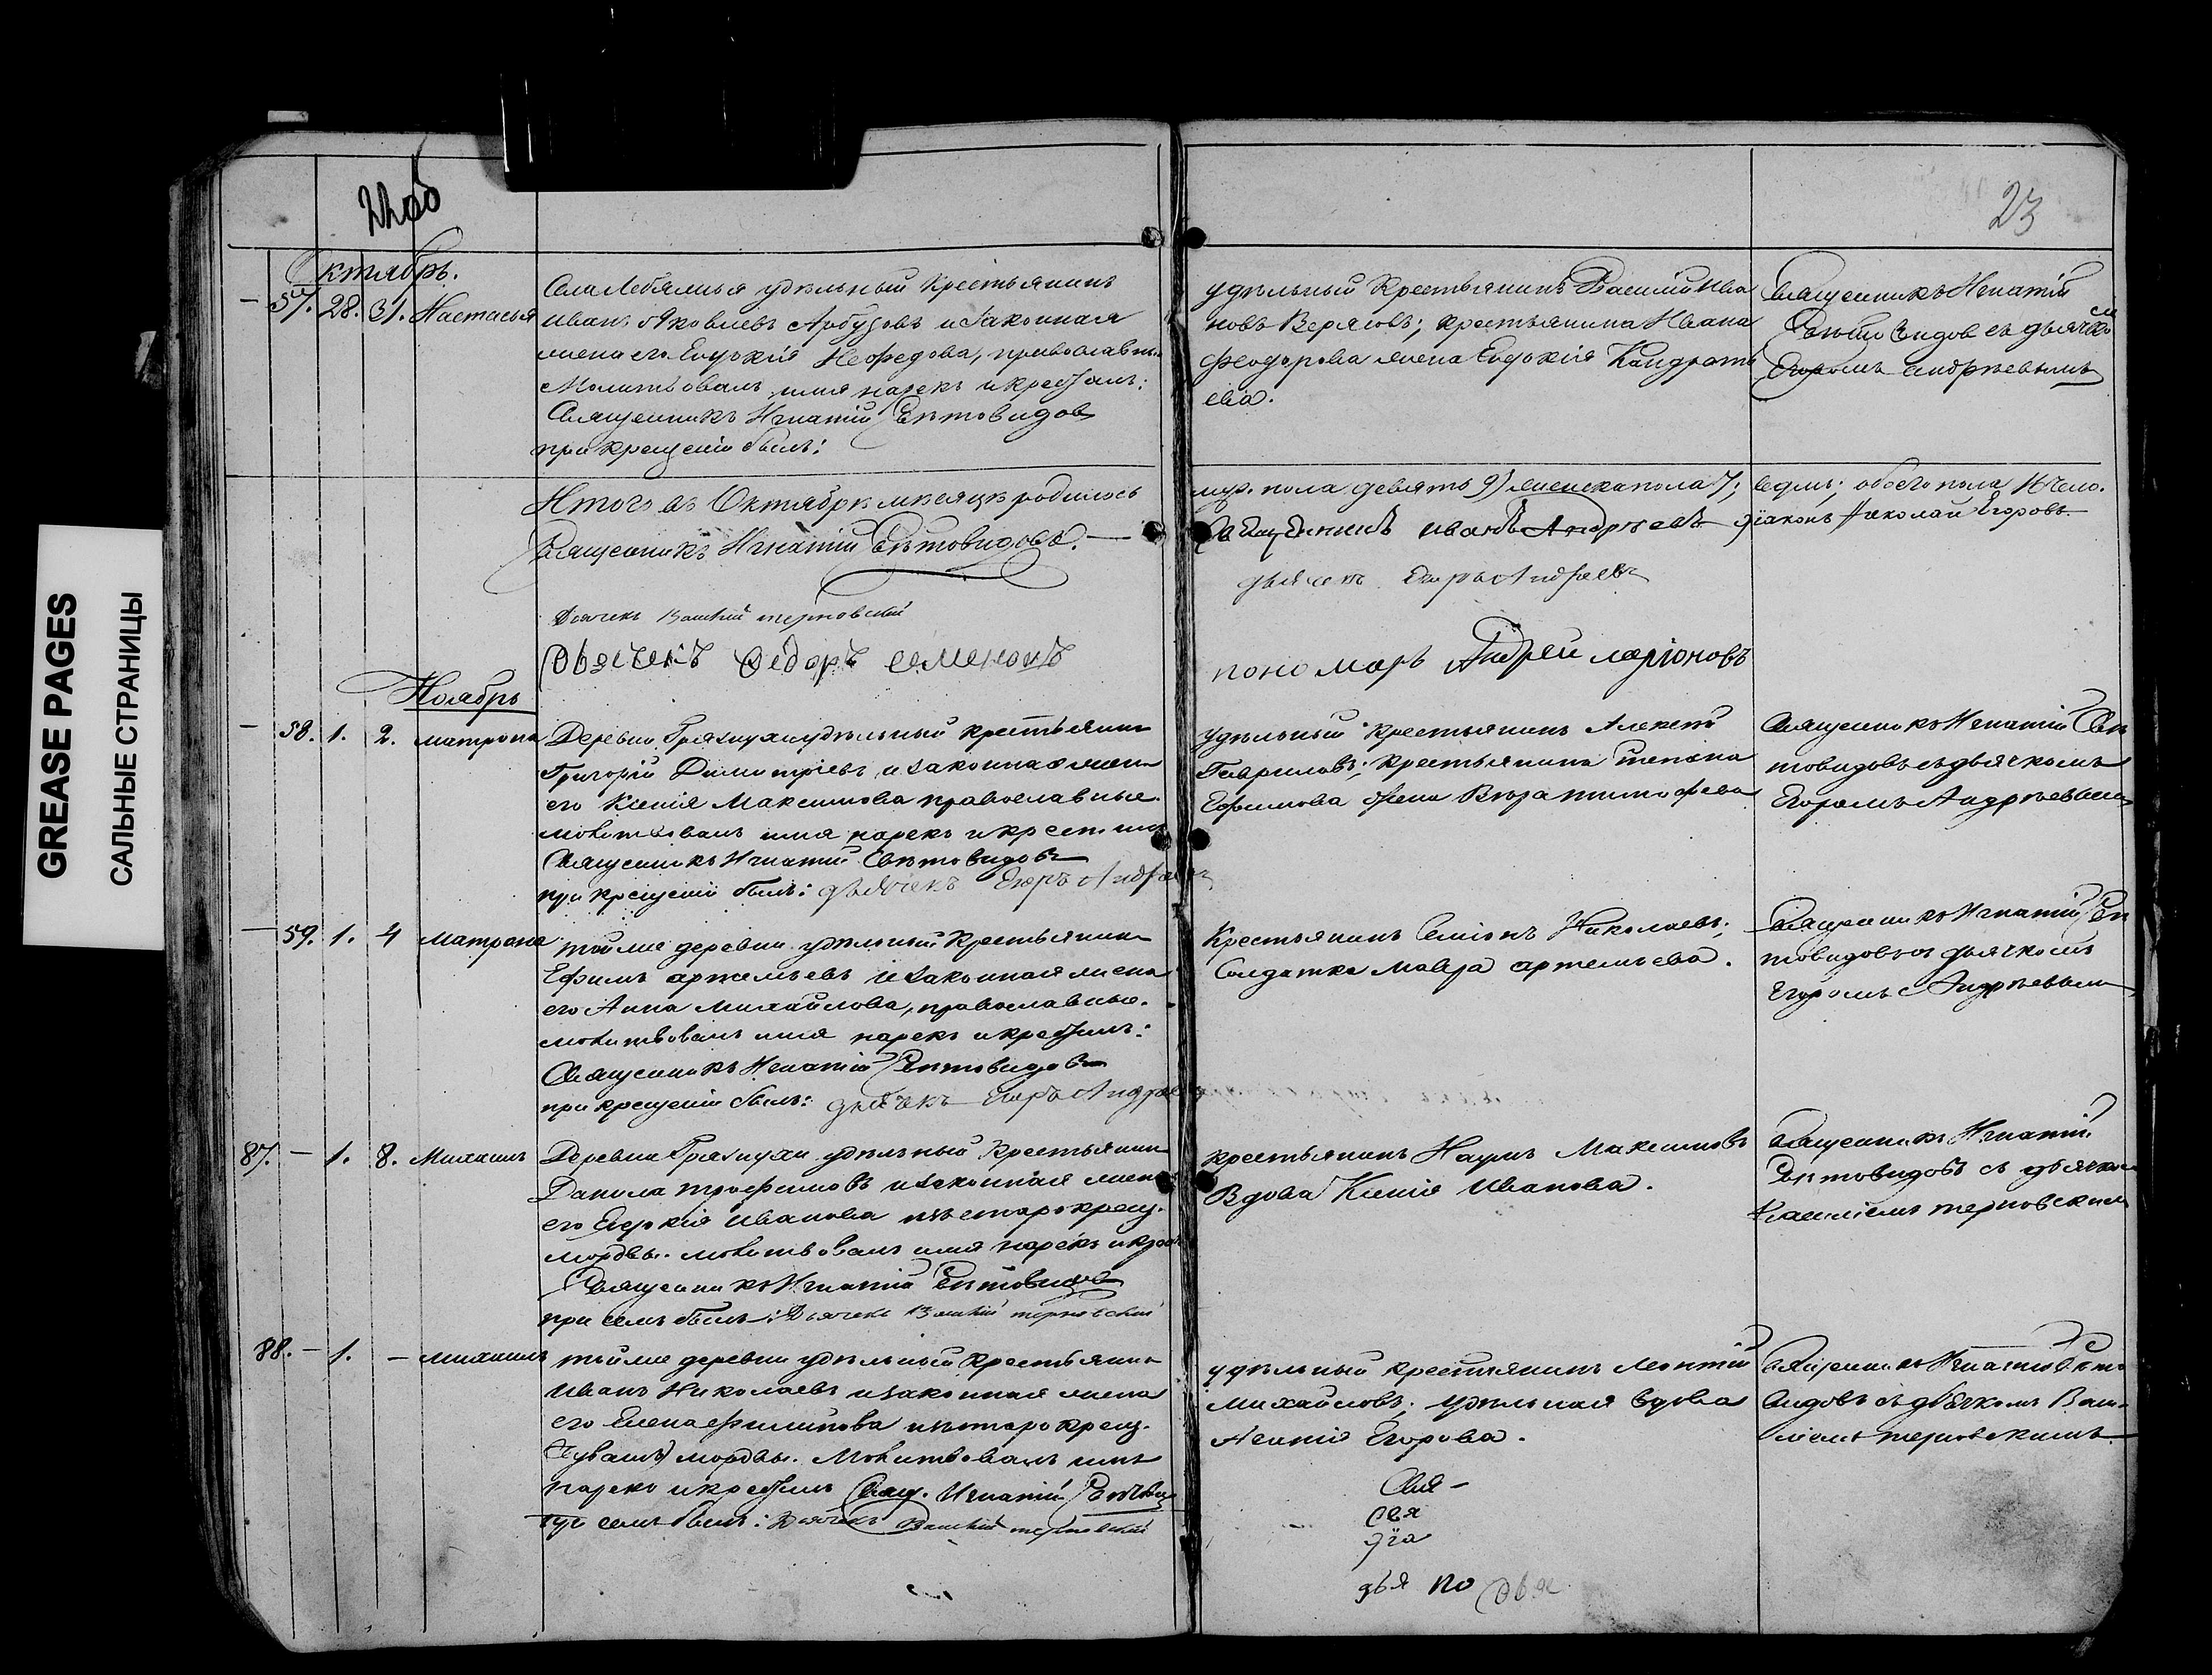 GREASE PAGES
САЛЬНЫЕ СТРАНИЦЫ
22об
23
Октябрь.
57. 28. 31. Настасья
Села Лебяжья удѣльный крестьянинъ
Иванъ Яковлевъ Арбузовъ и законная
жена его Евдокія Нефедова, православны.
Молитвовалъ, имя нарекъ и крестилъ:
Священникъ Игнатій Свѣтовидовъ
при крещеніи былъ:
удѣльный крестьянинъ Василій Ива
новъ Верясовъ; крестьянина Ивана
Феодорова жена Евдокія Кондрать
ева.
Священникъ Игнатій
Свѣтовидов съ дьячко
Егоромъ Андреевымъ
Итого въ Октябрѣ мѣсяцѣ родилось
муж. пола девять 9) женска пола 7; седмь; обоего пола 16 чело.
Священникъ Игнатій Свѣтовидовъ.
Священникъ Иванъ Андреевъ діаконъ Николай Егоровъ
дьячекъ Егоръ Андреевъ
Дьячекъ Василій терновскій
Дьячекъ Федоръ Семеновъ
пономарь Андрей ларіоновъ
Ноябрь
58. 1. 2. матрона
Деревни Грязнухи удѣльный крестьянинъ
Григорій Димитріевъ и законная жена
его Ксенія Максимова православные.
молитвовалъ имя нарекъ и крестилъ
Священникъ Игнатій Свѣтовидовъ
при крещеніи былъ: дьячекъ Егоръ Андреевъ
удѣльный крестьянинъ Алексѣй
Гавриловъ; крестьянина Степана
Ефимова жена Вѣра тимофеева
Священникъ Игнатій Свѣ
товидовъ съ дьячкомъ
Егоромъ Андреевымъ
59. 1. 4 Матрона
той же деревни удѣльный крестьянинъ
Ефимъ артемьевъ и законная жена
его Анна Михайлова, православные.
молитвовалъ имя нарекъ и крестилъ:
Священникъ Игнатій Свѣтовидовъ
при крещеніи былъ: дьячекъ Егоръ Андреевъ
Крестьянинъ Семіонъ Николаевъ;
Солдатка Мавра артемьева.
Священникъ Игнатій Свѣ
товидовъ съ дьячкомъ
Егоромъ Андреевымъ
87. – 1. 8. Михаилъ
Деревни Грязнухи удѣльный Крестьянинъ
Данила трофимовъ и законная жена
его Евдокія Иванова изъ старокрещ.
мордвы. молитвовалъ имя нарекъ и крест
Священникъ Игнатій Свѣтовидовъ
при семъ былъ: Дьячекъ Василій терновскій
крестьянинъ Наумъ Максимовъ
Вдова Ксенія Иванова.
Священникъ Игнатій
Свѣтовидовъ съ дьячкомъ
Василіемъ терновскимъ
88. – 1. – Михаилъ
той же деревни удѣльный крестьянинъ
Иванъ Николаевъ и законная жена
его Елена филипова изъ старокрещ.
мордвы. Молитвовалъ имя
нарекъ и крестилъ Свящ. Игнатій Свѣтовид
при семъ былъ: Дьячекъ Василій терновскій
удѣльный крестьянинъ Леонтій
Михайловъ; удѣльная вдова
Егорова.
Священникъ Игнатій Свѣто
видовъ съ дьячкомъ Васи
ліемъ терновскимъ
Свя–
Свя
діа
дья по Дья